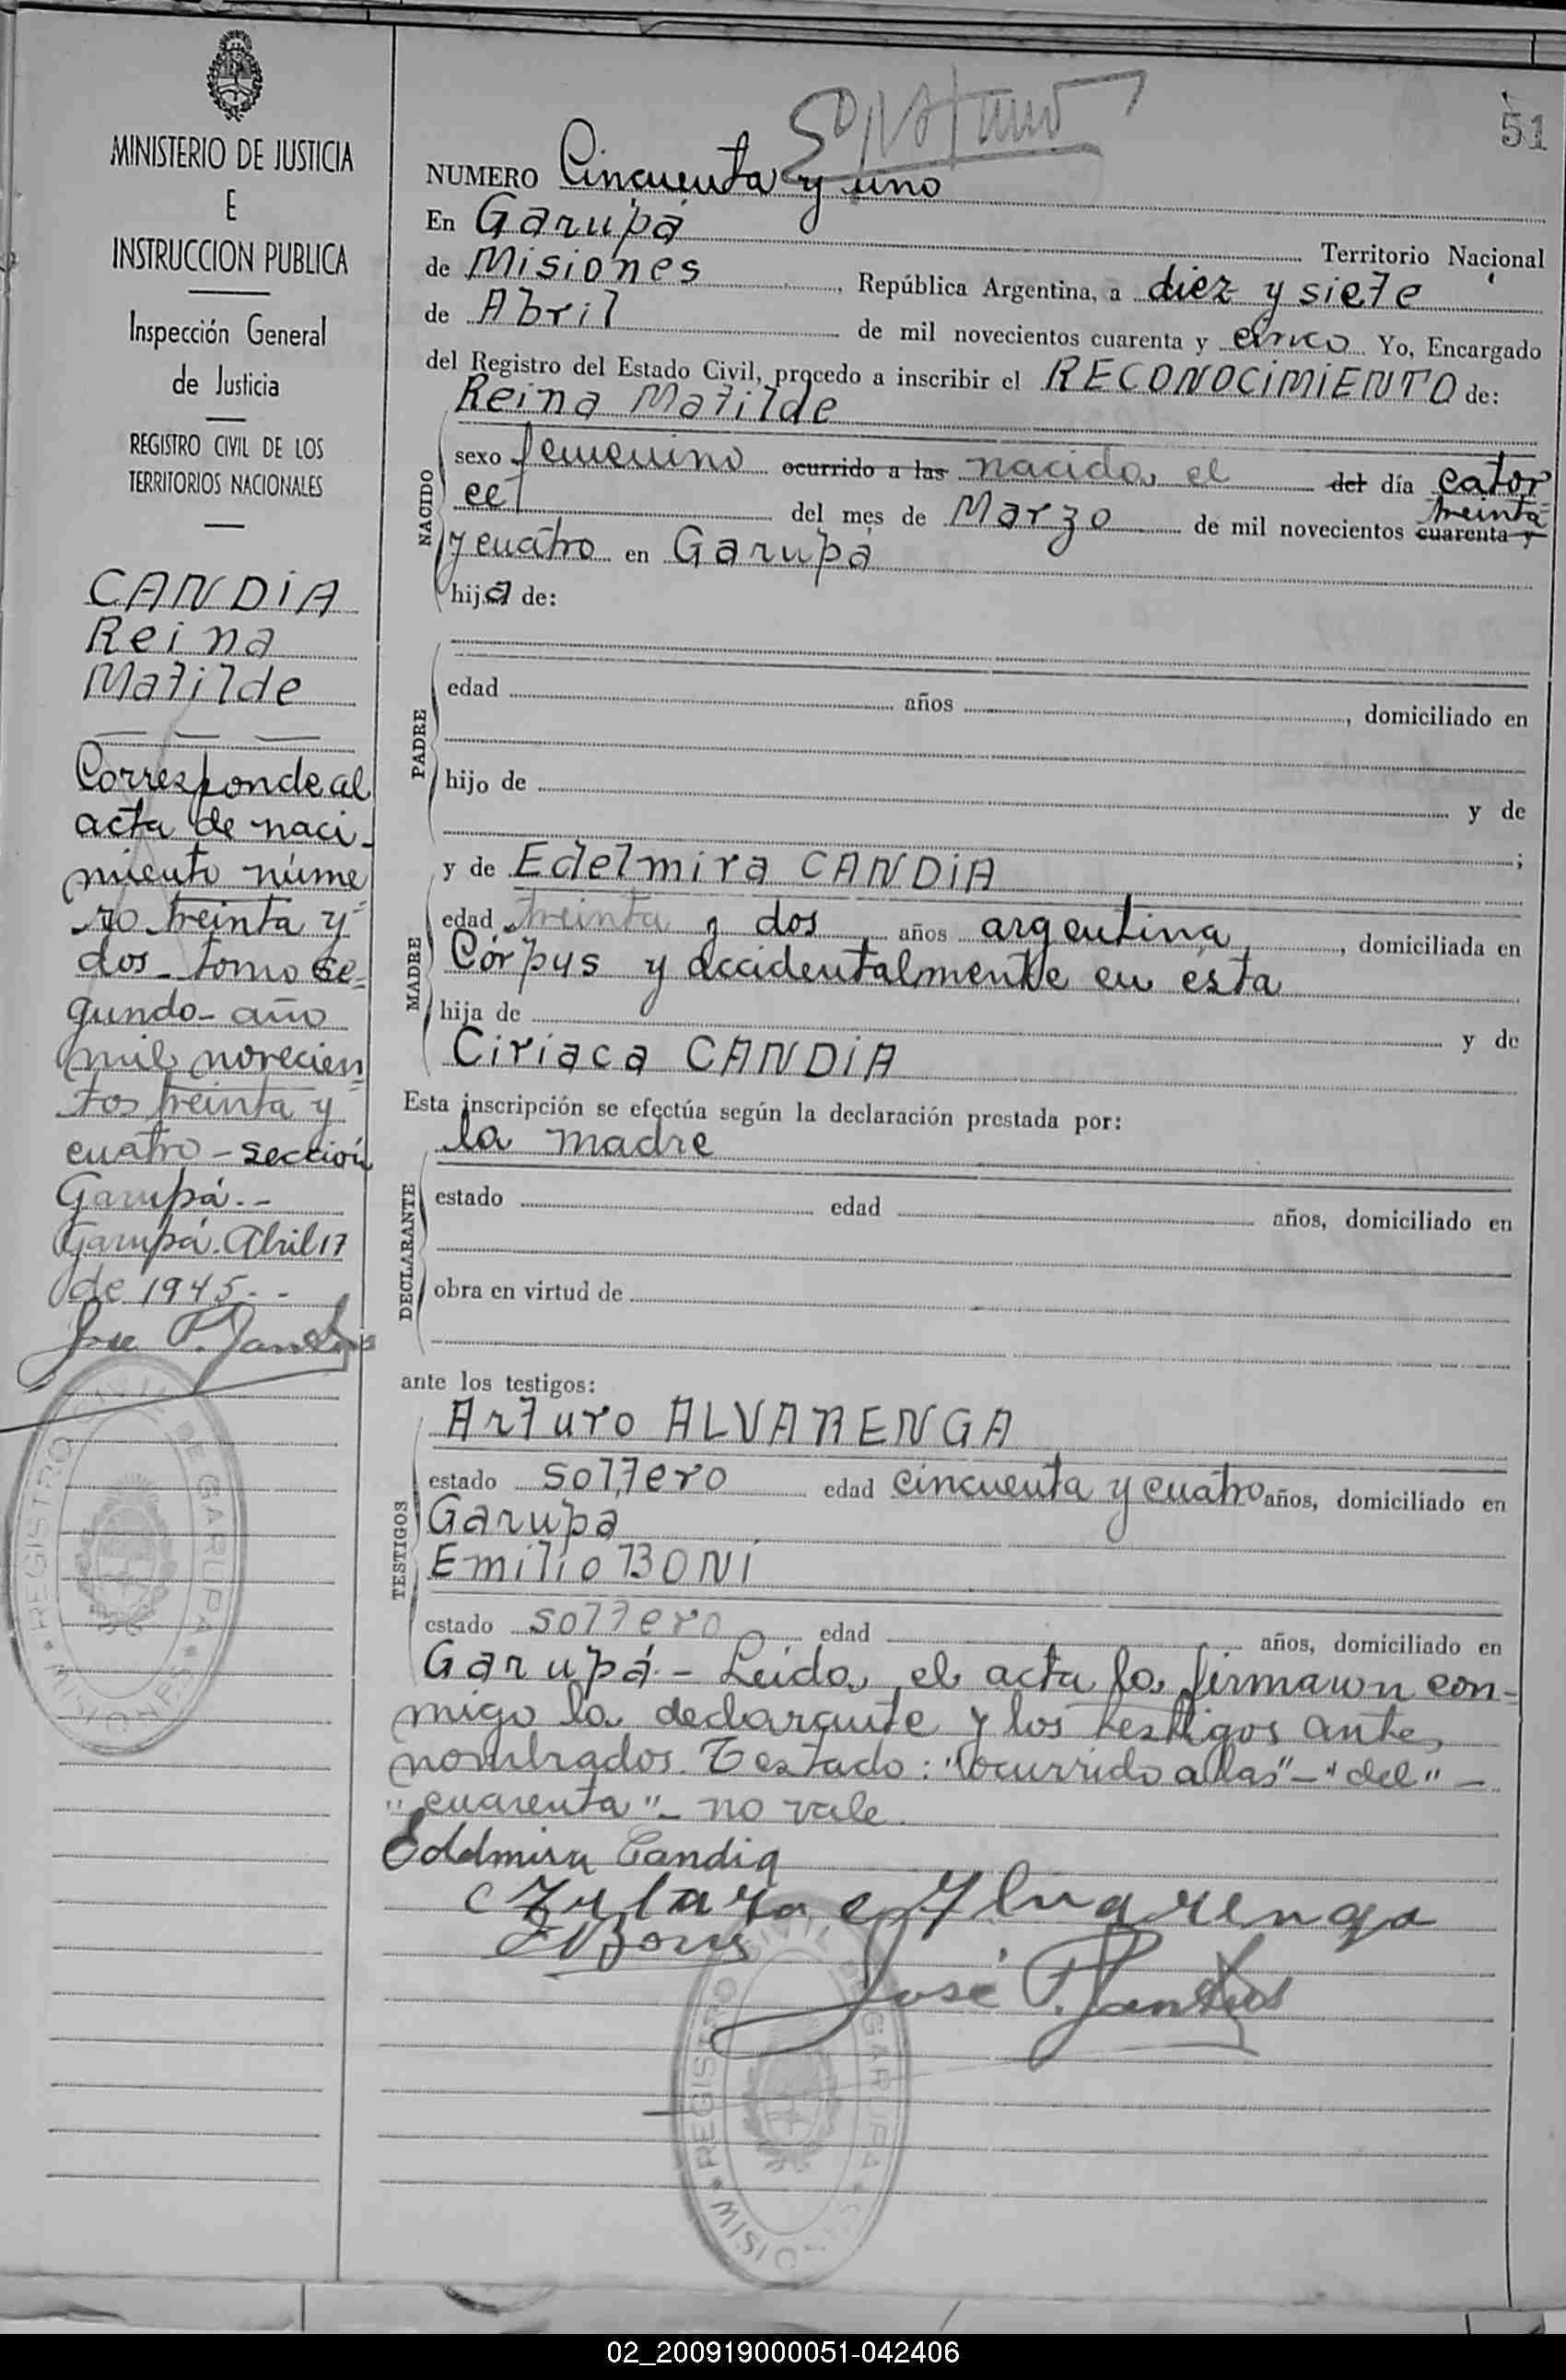 MINISTERIO DE JUSTICIA
E
INSTRUCCION PUBLICA
Inspección General
de Justicia
REGISTRO CIVIL DE LOS
TERRITORIOS NACIONALES
CANDIA
Reina
Matilde
Corresponde al
acta de naci-
miento núme
ro treinta y
dos - tomo se=
gundo - año
mil novecien=
tos treinta y
cuatro - sección
Garupá. -
Garupá. Abril 17
de 1945. - -
José P.
REGISTRO CIVIL DE GARUPA
MISIONES
51
NUMERO Cincuenta y uno
En Garupá Territorio Nacional
de Misiones, República Argentina, a diez y siete
de Abril de mil novecientos cuarenta y cinco Yo, Encargado
del Registro del Estado Civil, procedo a inscribir el RECONOCIMIENTO de:
Reina Matilde
NACIDO
sexo femenino ocurrido a las nacida el del día cator=
ce del mes de Marzo de mil novecientos cuarenta y treinta
y cuatro en Garupá
hija de:
PADRE
edad años , domiciliado en
hijo de y de
;
MADRE
y de Edelmira CANDIA
edad treinta y dos años argentina, domiciliada en
Córpus y accidentalmente en ésta
hija de y de
Ciriaca CANDIA
Esta inscripción se efectúa según la declaración prestada por:
la madre
DECLARANTE
estado edad años, domiciliado en
obra en virtud de
ante los testigos:
TESTIGOS
Arturo ALVARENGA
estado soltero edad cincuenta y cuatro años, domiciliado en
Garupá
Emilio BONI
estado soltero edad años, domiciliado en
Garupá - Leida el acta la firmaron con-
migo la declarante y los testigos ante
nombrados. Testado: "ocurrido a las" - "del" -
"cuarenta" - no vale
Edelmira Candia
Alvarenga
E Boni
José P.
REGISTRO CIVIL DE GARUPA
MISIONES
02_200919000051-042406